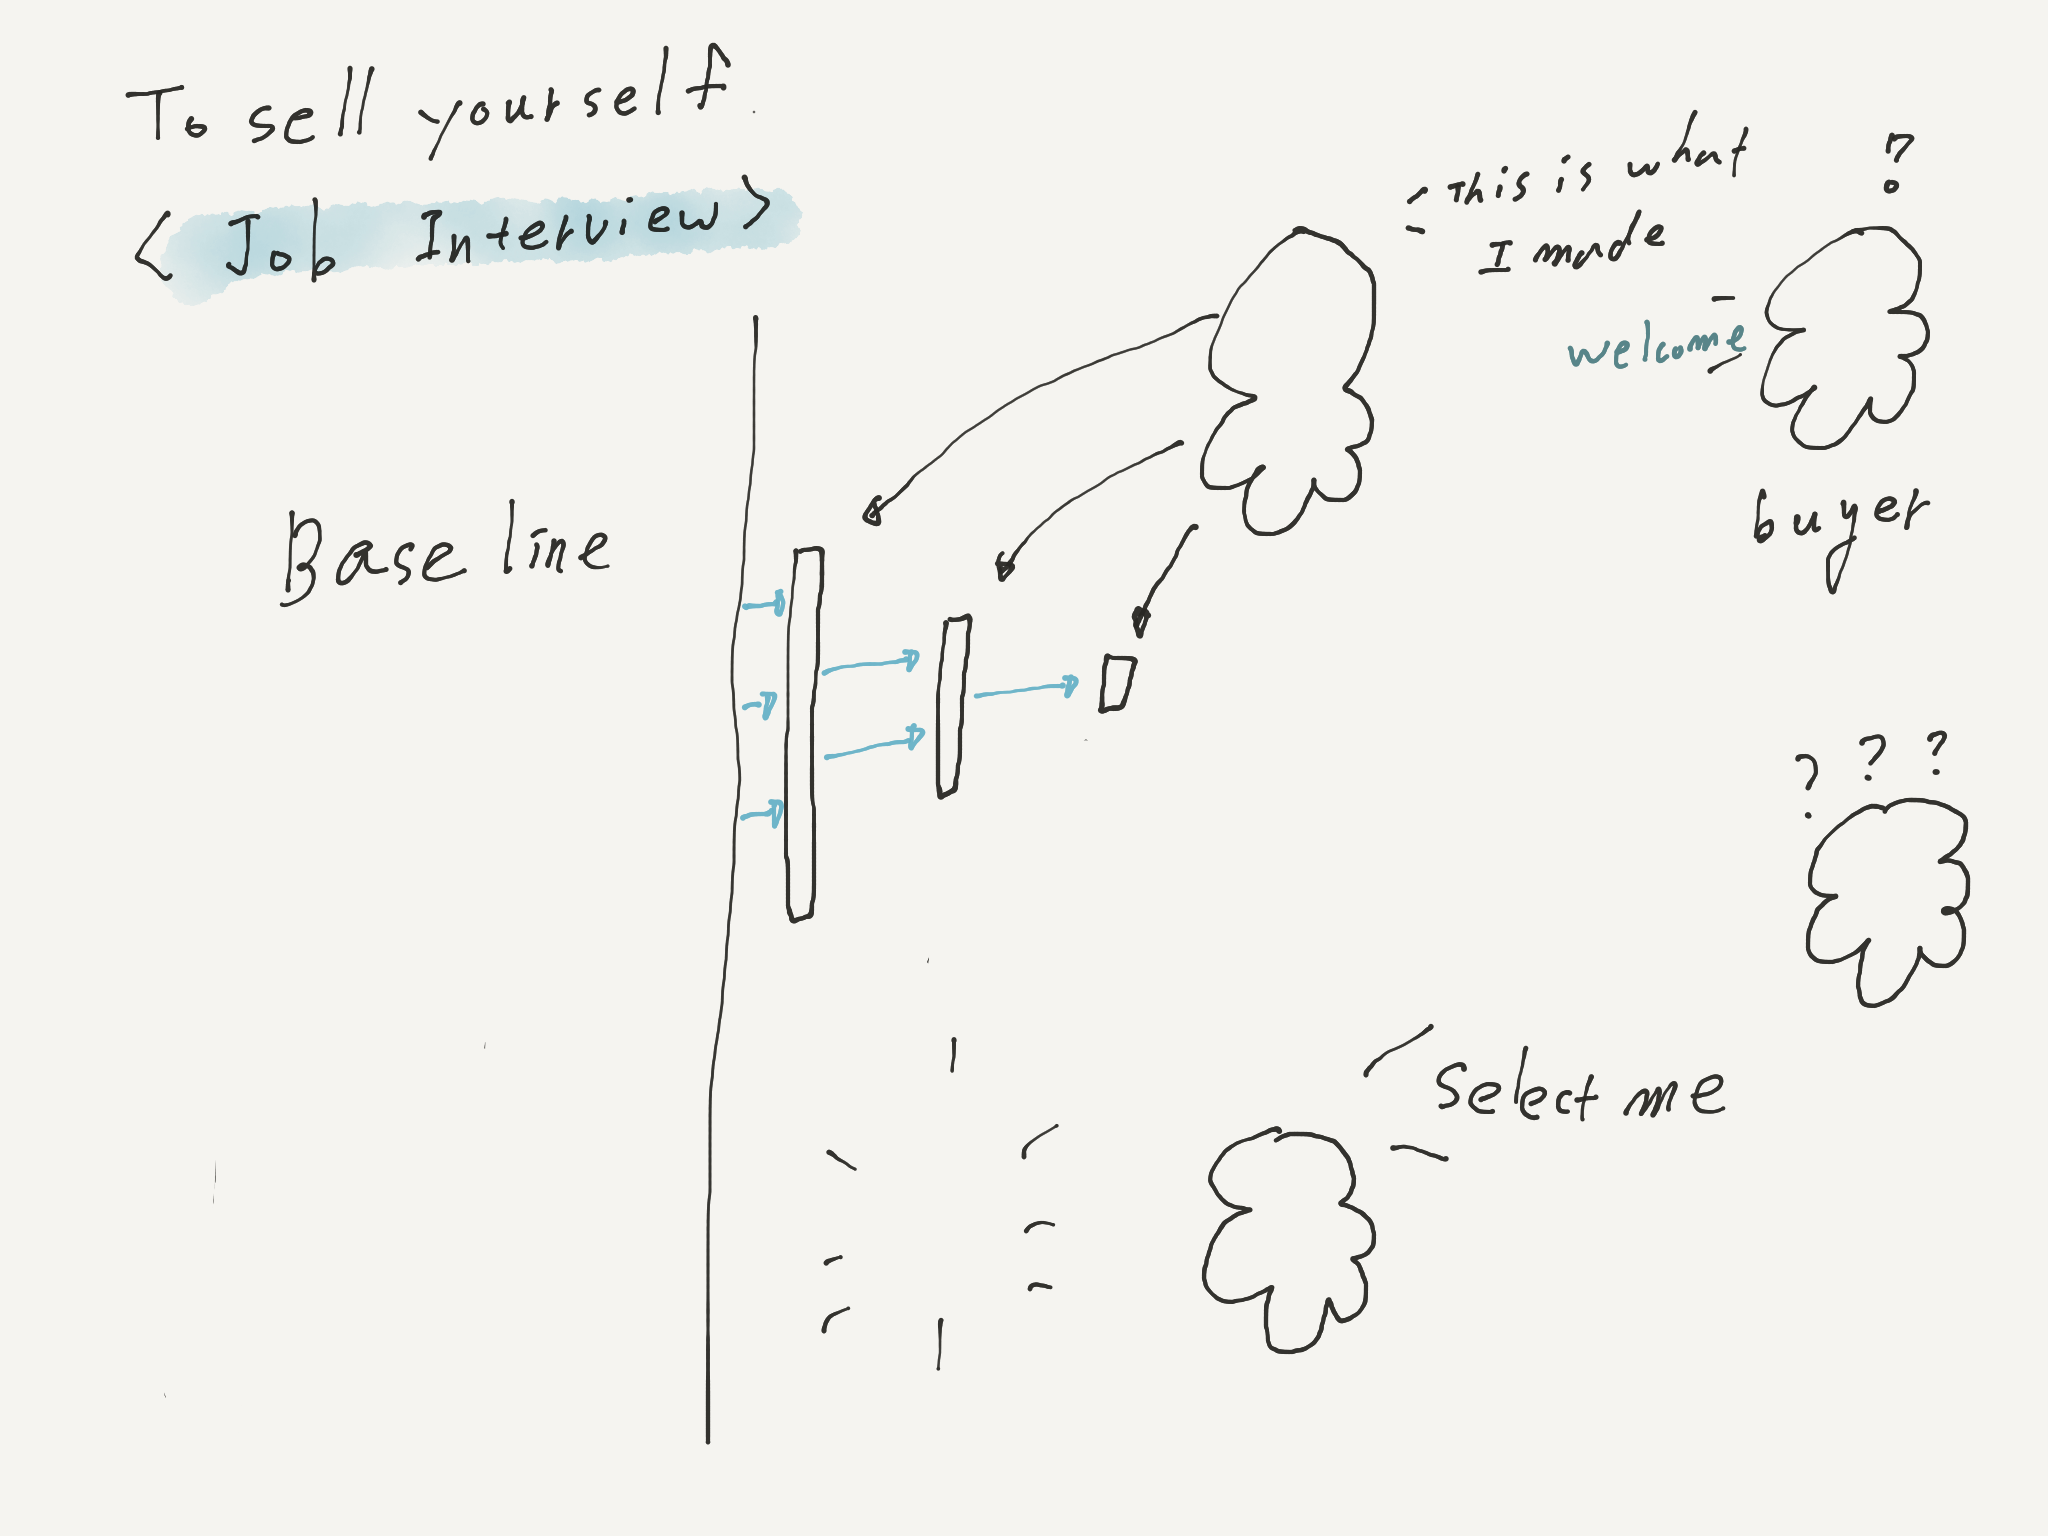 To sell yourself
< Job Interview >
This is what
I made
?
welcome
buyer
Base line
? ? ?
Select me